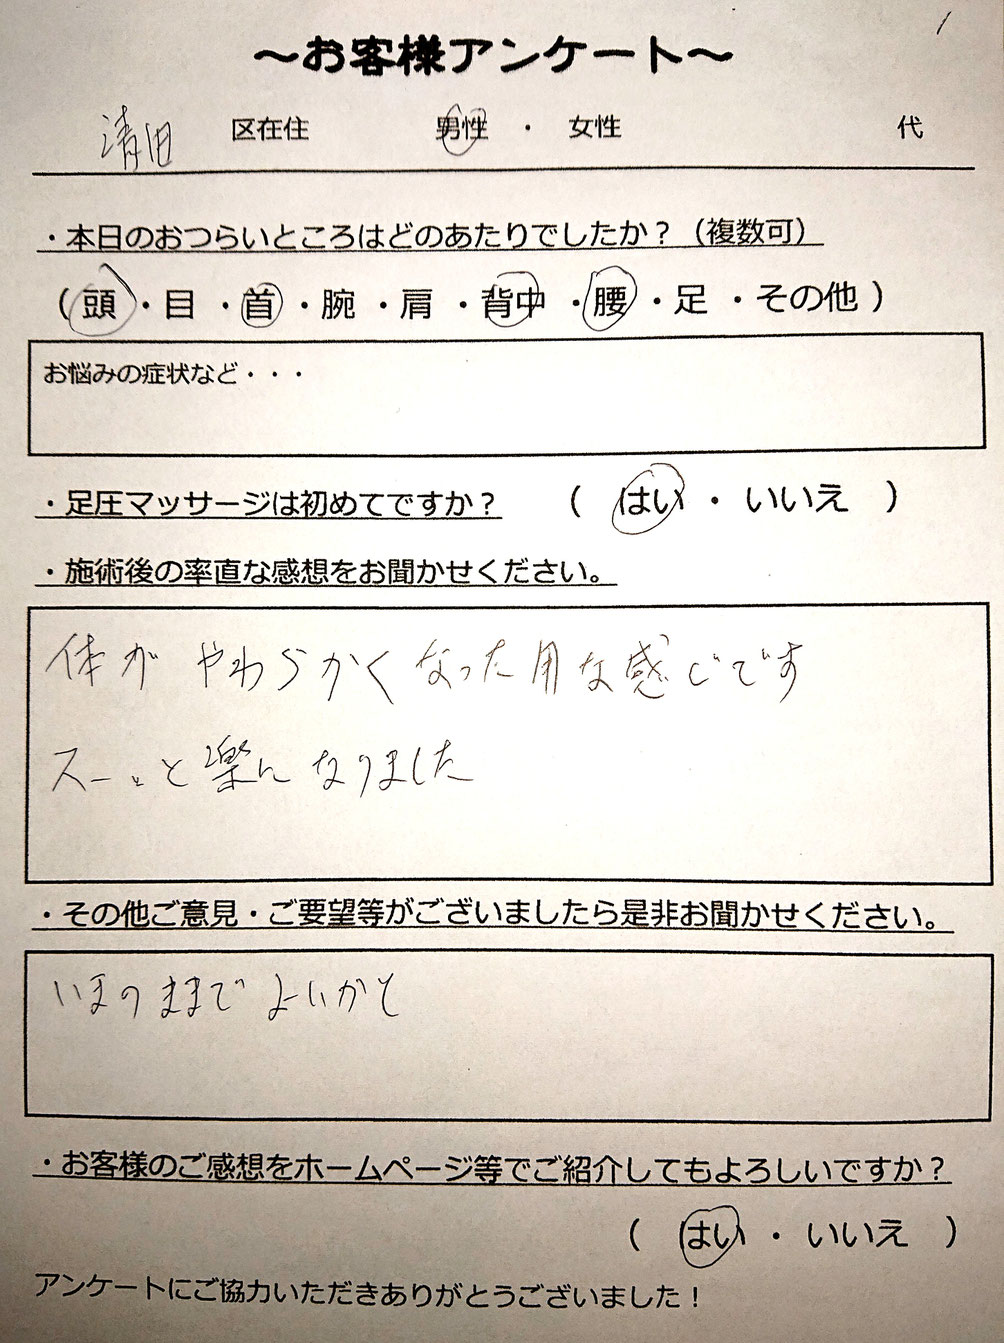 ～お客様アンケート～
清田 区在住 男性 ・ 女性 代
・本日のおつらいところはどのあたりでしたか？（複数可）
（ 頭 ・ 目 ・ 首 ・ 腕 ・ 肩 ・ 背中 ・ 腰 ・ 足 ・ その他 ）
お悩みの症状など・・・
・足圧マッサージは初めてですか？ （ はい ・ いいえ ）
・施術後の率直な感想をお聞かせください。
体が やわらかくなった用な感じです
スーッと楽んなりました
・その他ご意見・ご要望等がございましたら是非お聞かせください。
いまのままでよいかと
・お客様のご感想をホームページ等でご紹介してもよろしいですか？
（ はい ・ いいえ ）
アンケートにご協力いただきありがとうございました！